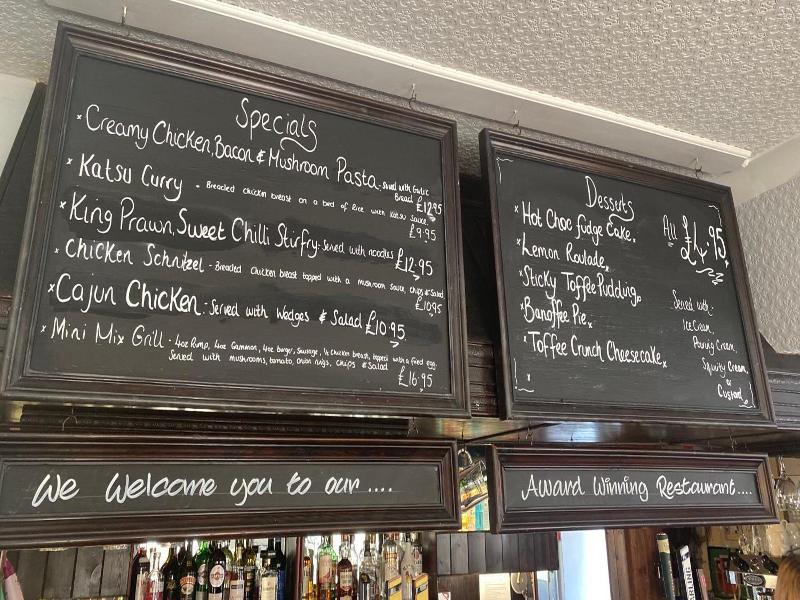 Specials
* Creamy Chicken, Bacon & Mushroom Pasta - served with Garlic
Bread £12.95
* Katsu Curry - Breaded chicken breast on a bed of Rice with Katsu Sauce
£9.95
* King Prawn, Sweet Chilli Stirfry - Served with noodles
£12.95
* Chicken Schnitzel - Breaded Chicken breast topped with a mushroom Sauce, Chips & Salad
£10.95
* Cajun Chicken - Served with Wedges & Salad £10.95
* Mini Mix Grill - 4oz Rump, 4oz Gammon, 4oz Burger, Sausage, ½ Chicken breast, topped with a fried egg.
Served with mushrooms, tomato, onion rings, Chips & Salad
£16.95
Desserts
All £4.95
* Hot Choc fudge Cake
* Lemon Roulade
* Sticky Toffee Pudding
* Banoffee Pie
* Toffee Crunch Cheesecake
Served with:
Ice Cream,
Pouring Cream
Squirty Cream
&
Custard
We Welcome you to our ....
Award Winning Restaurant....